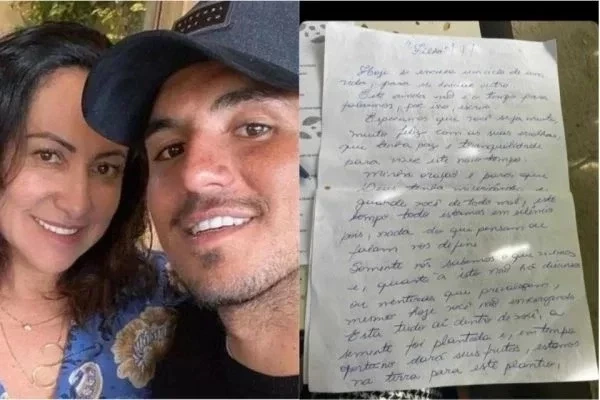 "Filho"!!
Hoje se encerra um ciclo de uma
vida, para se iniciar outro.
Este ainda não é o tempo para
falarmos, por isso, escrevo.
Esperamos que você seja muito,
muito feliz com as suas escolhas,
que tenha paz e tranquilidade
para viver este novo tempo.
Minha oração é para que
Deus tenha misericórdia e
guarde você de todo mal, este
tempo todo estamos em silêncio
pois, nada do que pensam ou
falam nos define.
Somente nós sabemos o que vivemos
e, quanto a isto não há discurso
ou mentiras que prevaleçam,
mesmo hoje você não enxergando
Está tudo aí dentro de você, a
semente foi plantada e, em tempo
oportuno dará seus frutos, estamos
na terra para este plantio,